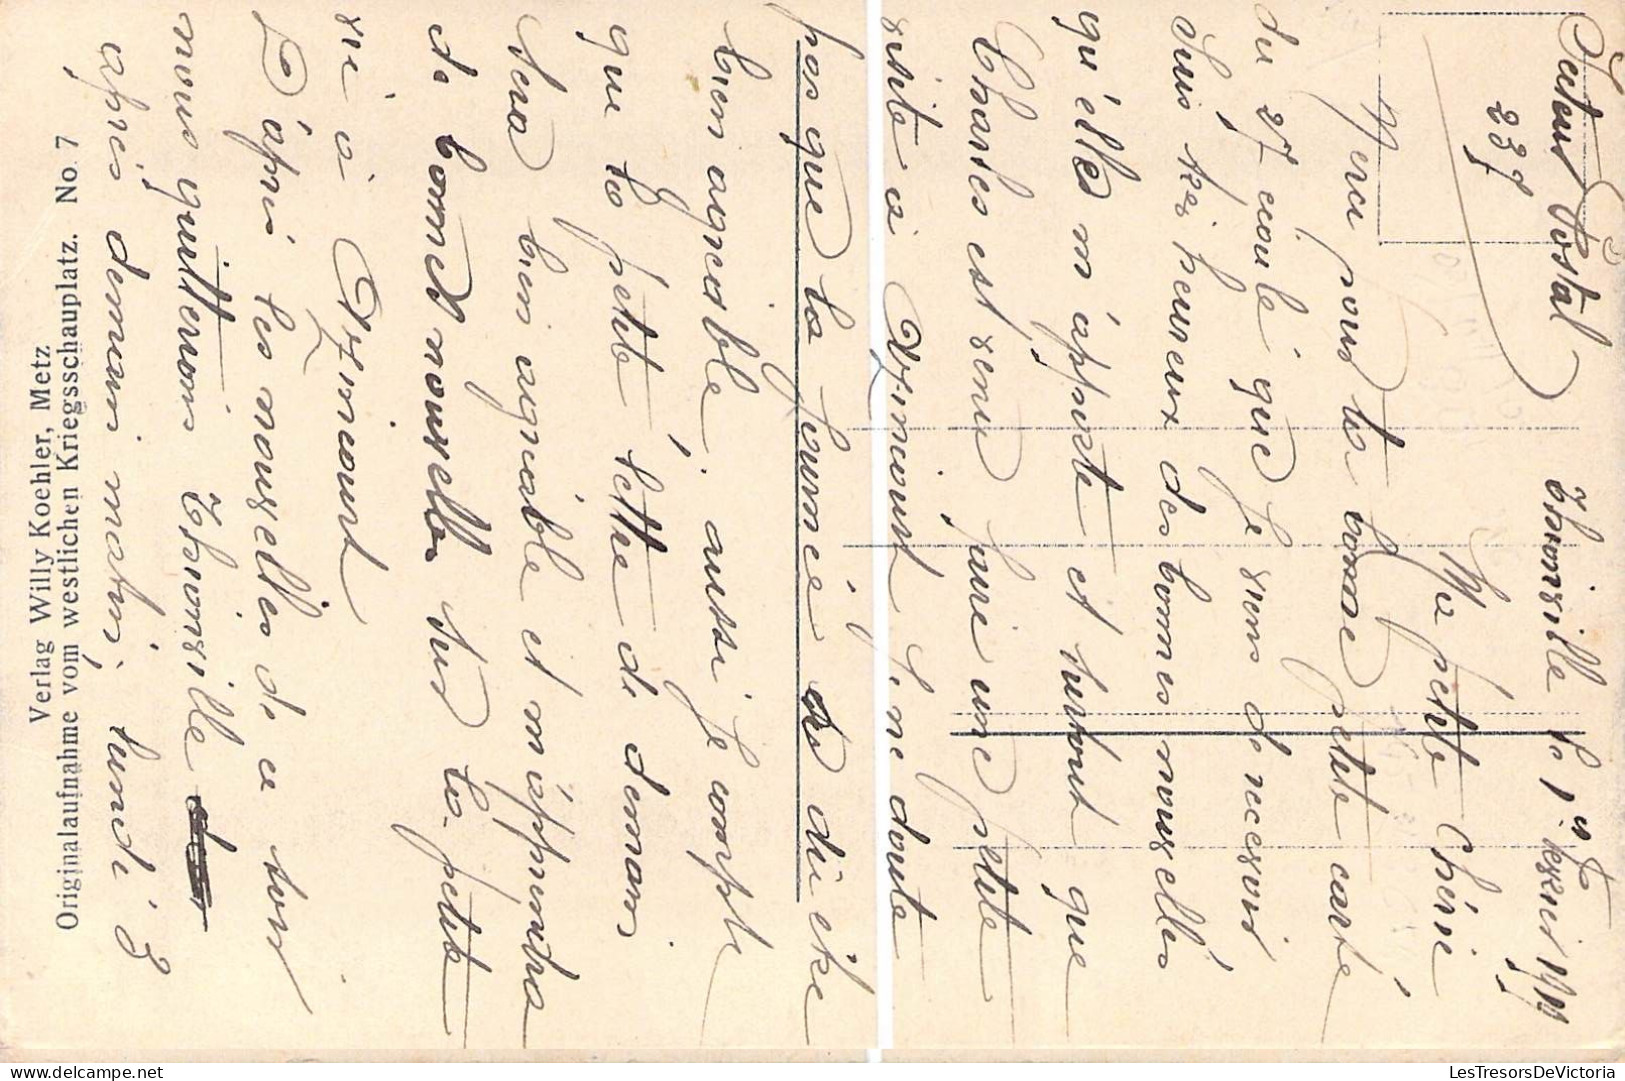 Secteur Postal
237
Thionville le 1er fevrier 1919
Ma petite Chérie
Merci pour ta bonne petite carte
du 27 écoulé que je viens de recevoir
suis tres heureux des bonnes nouvelles
qu'elles m'apporte et surtout que
Charles est venu faire une petite
visite à Azincourt, je ne doute
pas que ta journée a dû être
bien agréable, aussi je compte
que ta petite lettre de demain
sera bien agréable et m'apprendra
de bonnes nouvelles sur ta petite
vie à Azincourt
D'après les nouvelles de ce soir
nous quitterons Thionville
après demain matin, lundi 3
Verlag Willy Koehler, Metz
Originalaufnahme vom westlichen Kriegsschauplatz. No. 7
LesTresorsDeVictoria